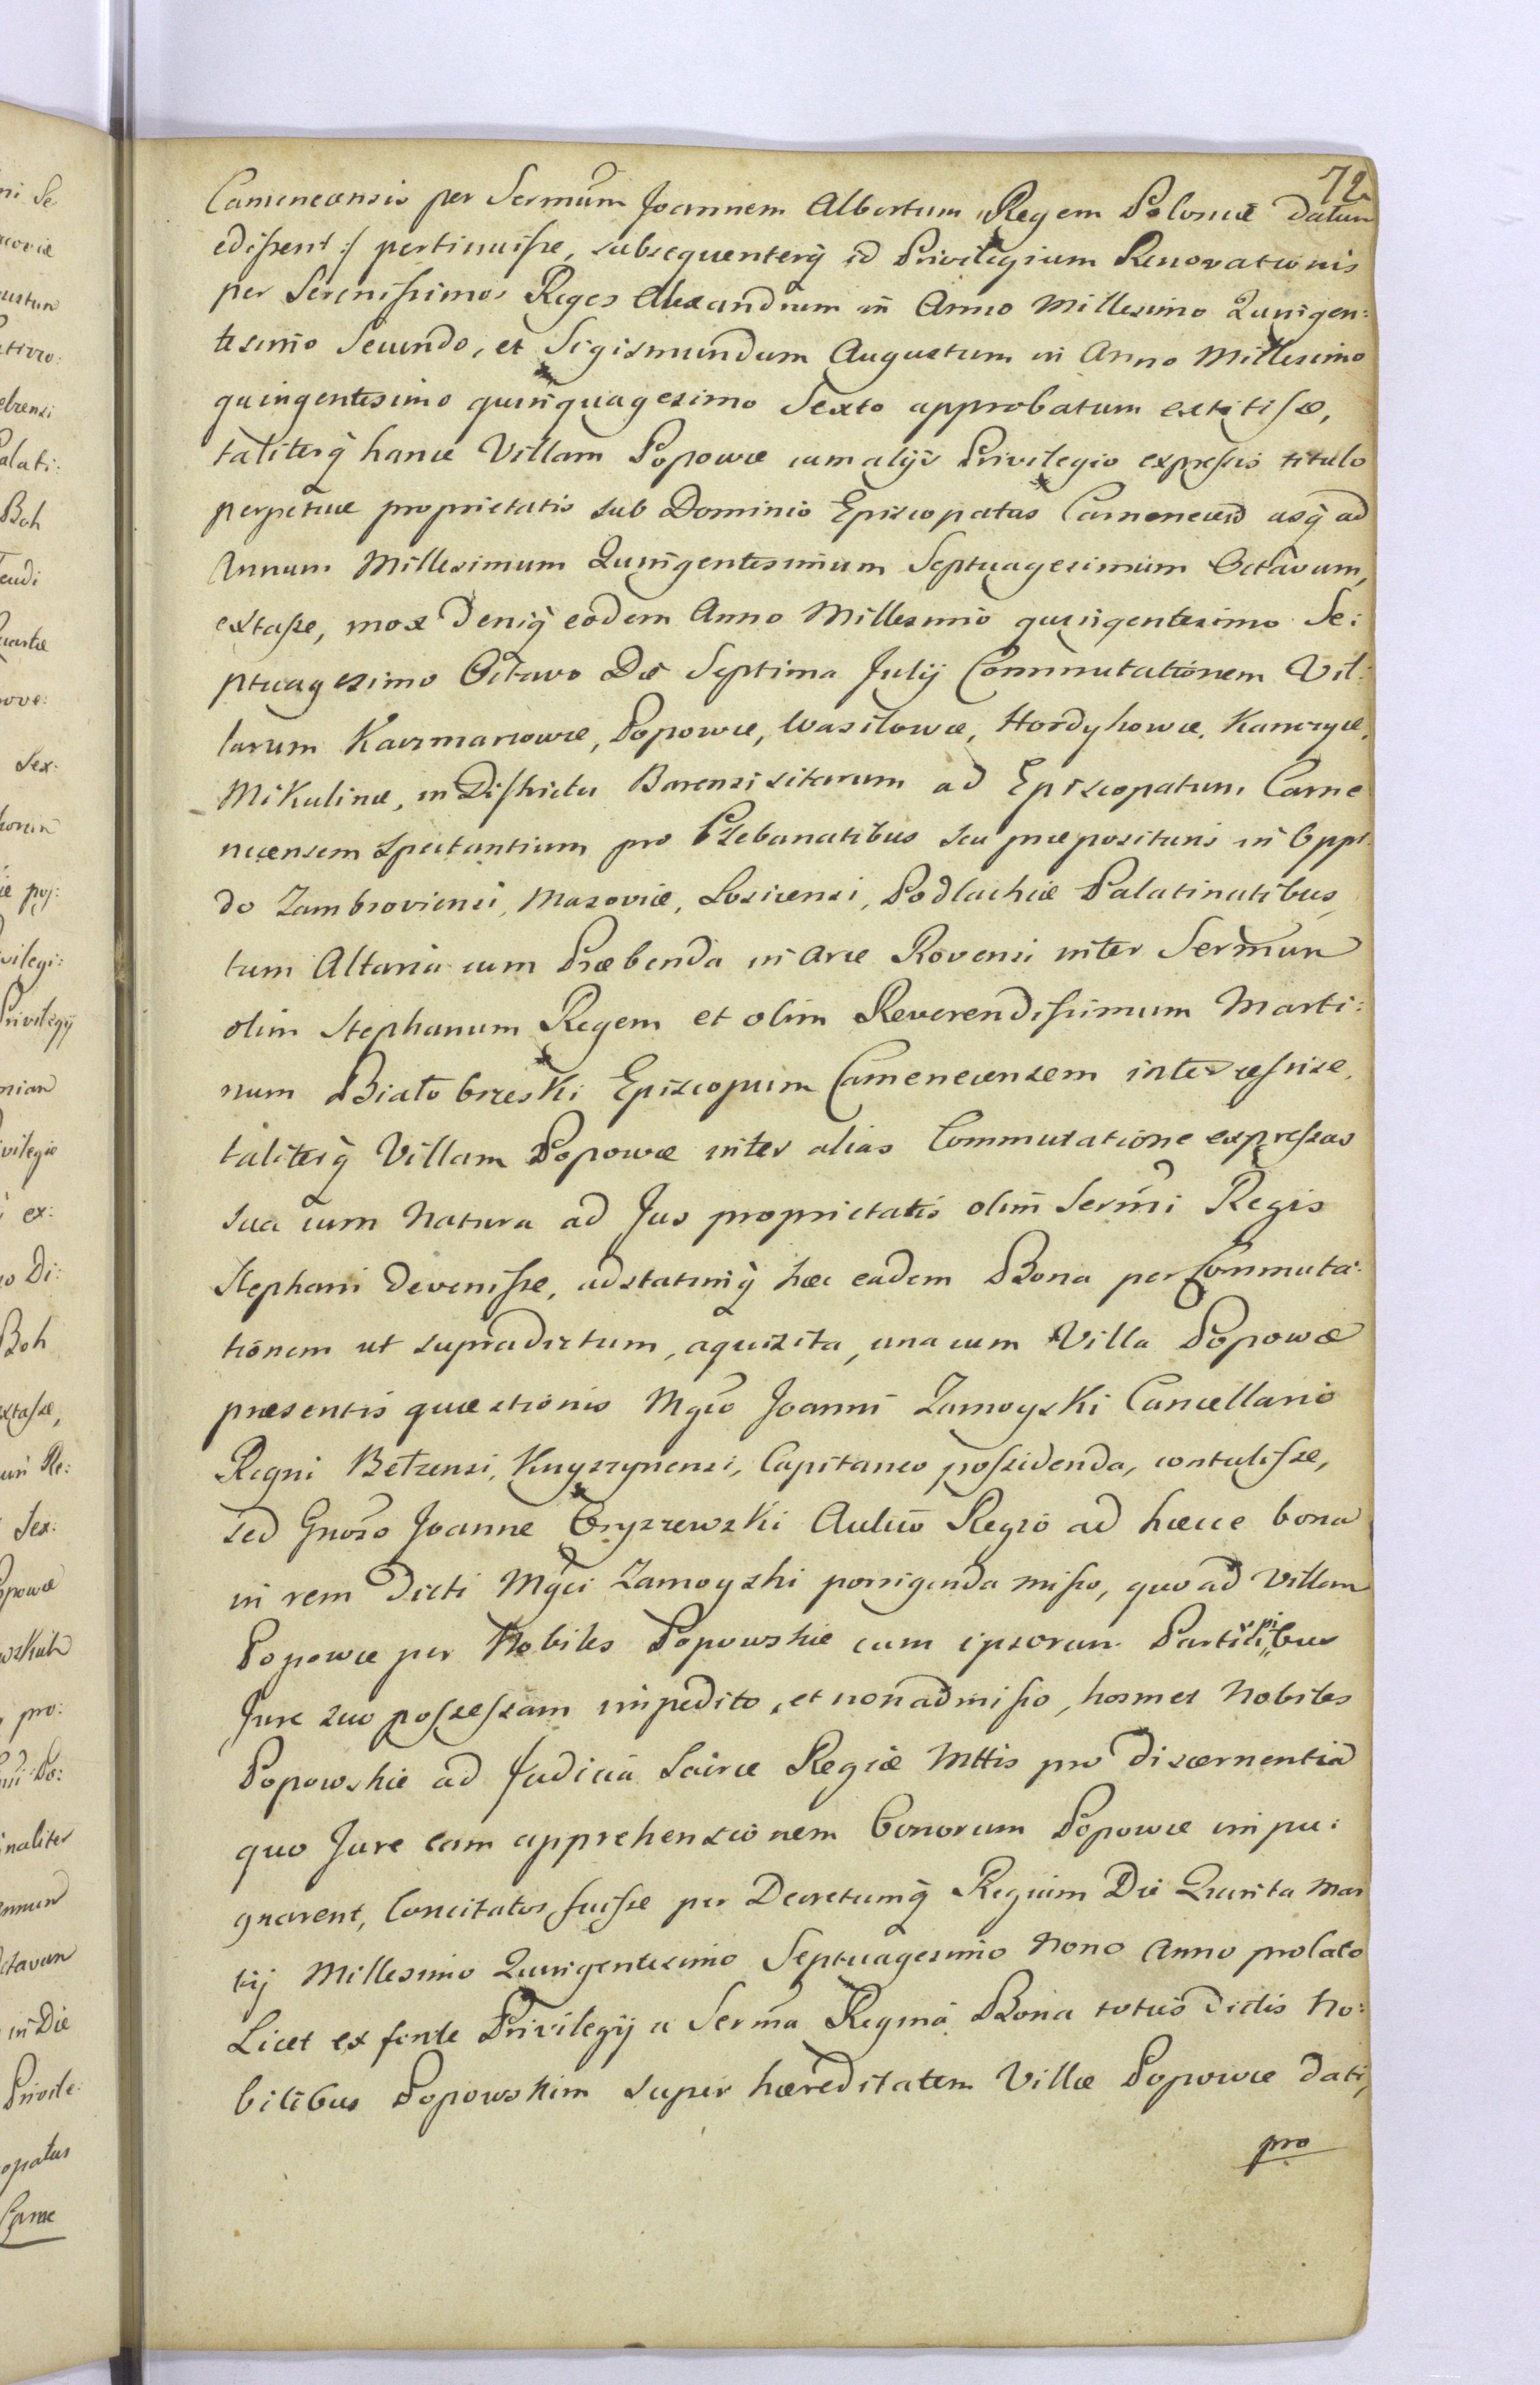 72
Cameneconsis per Sermum Joannem Albertum Regem Poloniæ datum
edissent :/ pertinuisse, subsequenterq̃ id Privilegium Renovationis
per Serenissimos Reges Alexandrum in Anno Millesimo Quingen:
tesimo Secundo, et Sigismundum Augustum in Anno Millesimo
quingentesimo quinquagesimo Sexto approbatum extitisse,
taliterq̃ hance Villam Popowce cum alijs Privilegio expressis titulo
perpetuæ proprietatis sub Dominio Episcopatus Camenecen usq̃ ad
Annum Millesimum Quingentesimum Septuagesimum Octavum,
extasse, mox deniq̃ eodem Anno Millesimo quingentesimo Se:
ptuagesimo Octavo Die Septima Julij Commutationem Vil:
larum Kaczmarowce, Popowce, Wasilowce, Hordyhowce, Kamczyce,
Mikulince, in Districtu Barensi sitarum ad Episcopatum Came
necensem spectantium pro Plebanatibus seu præposituris in Oppi
do Zambroviensi, Masoviæ, Losicensi, Podlachiæ Palatinatibus,
tum Altaria cum Præbenda in Arce Rovensi inter Sermum
olim Stephanum Regem et olim Reverendissimum Marti:
num Białobrzeski Episcopum Camenecensem intercessisse,
taliterq̃ Villam Popowce inter alias Commutatione expressas
sua cum Natura ad Jus proprietatis olim Sermi Regis
Stephani devenisse, adstatimq̃ hæc eadem Bona per Commuta:
tionem ut supradictum, aquisita, una cum Villa Popowce
præsentis quæstionis Mgco Joanni Zamoyski Cancellario
Regni Bełzensi, Knyszynensi, Capitaneo possidenda, contulisse,
sed Gnoso Joanne Oryszewski Aulico Regio ad hæcce bona
in rem dicti Mgci Zamoyski porrigenda misso, quo ad Villam
Popowce per Nobiles Popowskie cum ipsorum
Jure suo possessam impedito, et non admisso, hosmet Nobiles
Popowskie ad Judicia Sacræ Regiæ Mttis pro discernentia
quo Jure eam apprehensionem bonorum Popowce impu:
gnarent, Concitatos fuisse per Decretumq̃ Regium Die Quinta Mar
tij Millesimo Quingentesimo Septuagesimo Nono Anno prolato
Licet ex fonte Privilegij a Serma Regina Bona totius dictis No:
bilibus Popowskim super hæreditatem Villæ Popowce dati,
pro